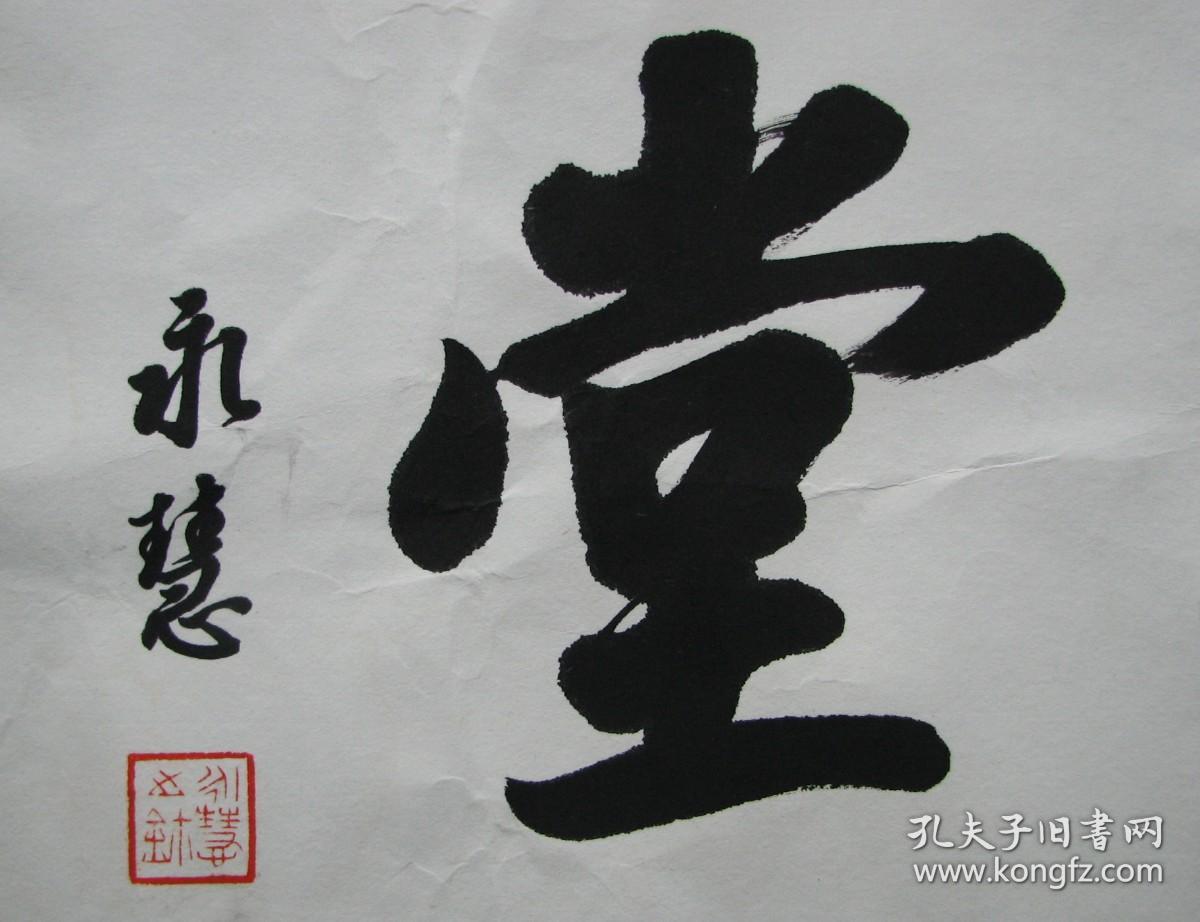 堂
永慧
孔夫子旧书网
www.kongfz.com